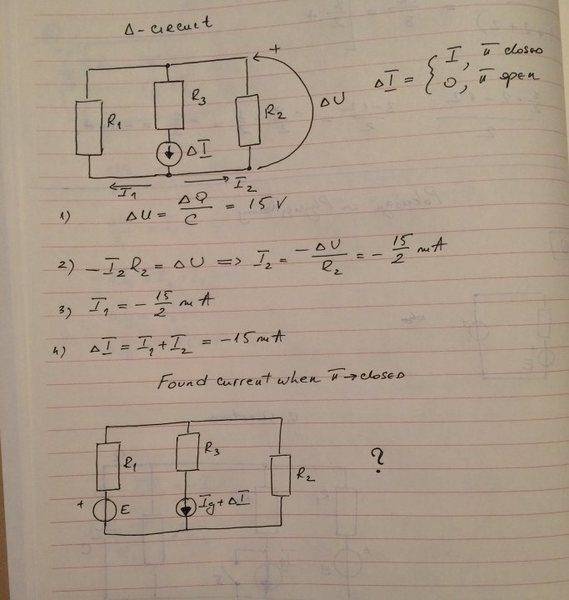 Δ-circuit
+
R₁
R₃
R₂
ΔI
ΔU
ΔI = { I, π closed
0, π open
I₁
I₂
1) ΔU = ΔQ/C = 15 V
2) -I₂R₂ = ΔU => I₂ = -ΔU/R₂ = -15/2 mA
3) I₁ = -15/2 mA
4) ΔI = I₁ + I₂ = -15 mA
Found current when π→closed
R₁
R₃
R₂
+
E
Ig + ΔI
?